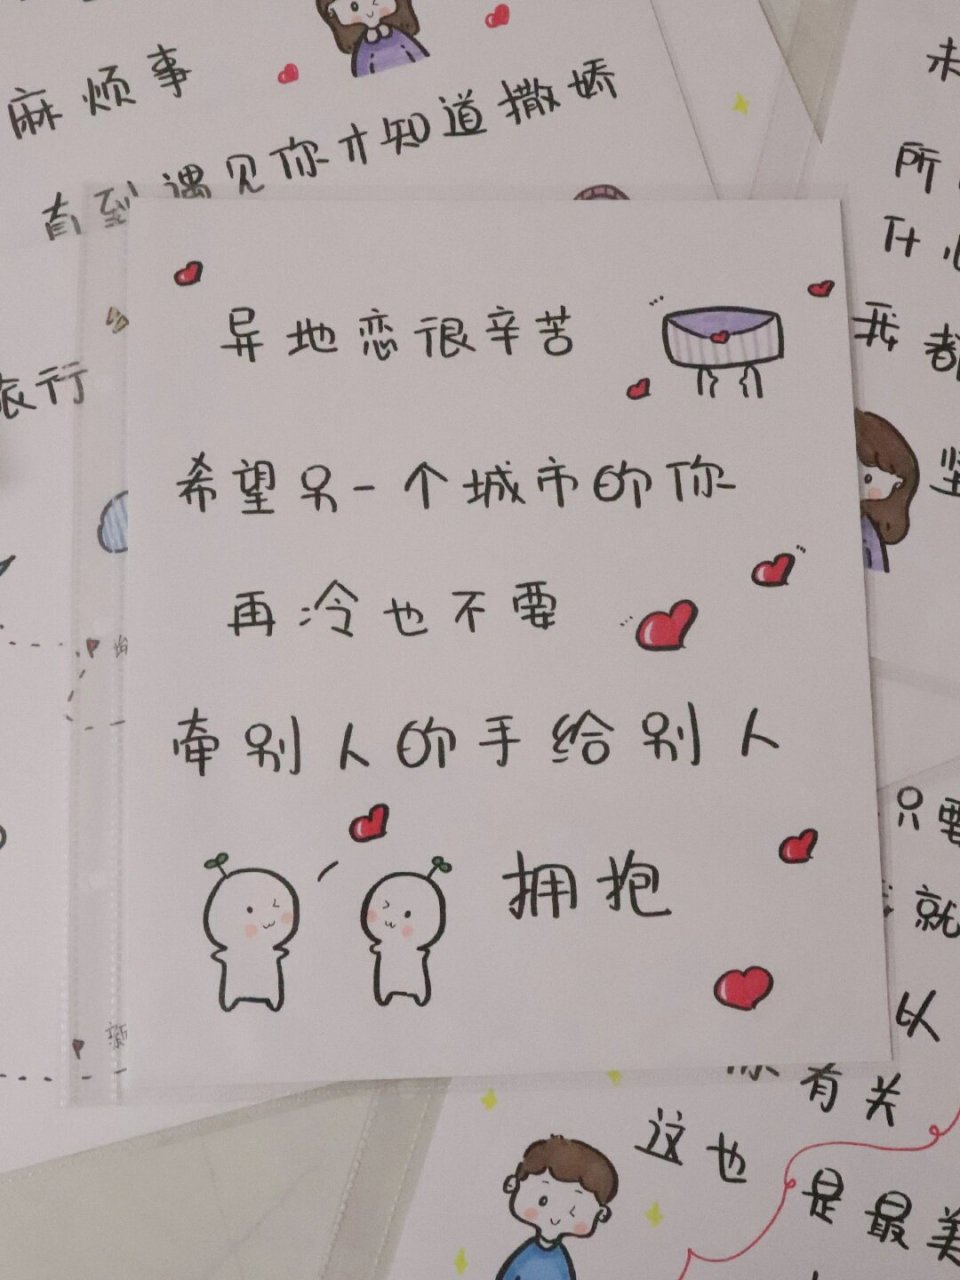 麻烦事
直到遇见你才知道撒娇
旅行
异地恋很辛苦
希望另一个城市的你
再冷也不要
牵别人的手给别人
拥抱
未
所
什
我都
坚
只要
就
以
你有关
这也是最美